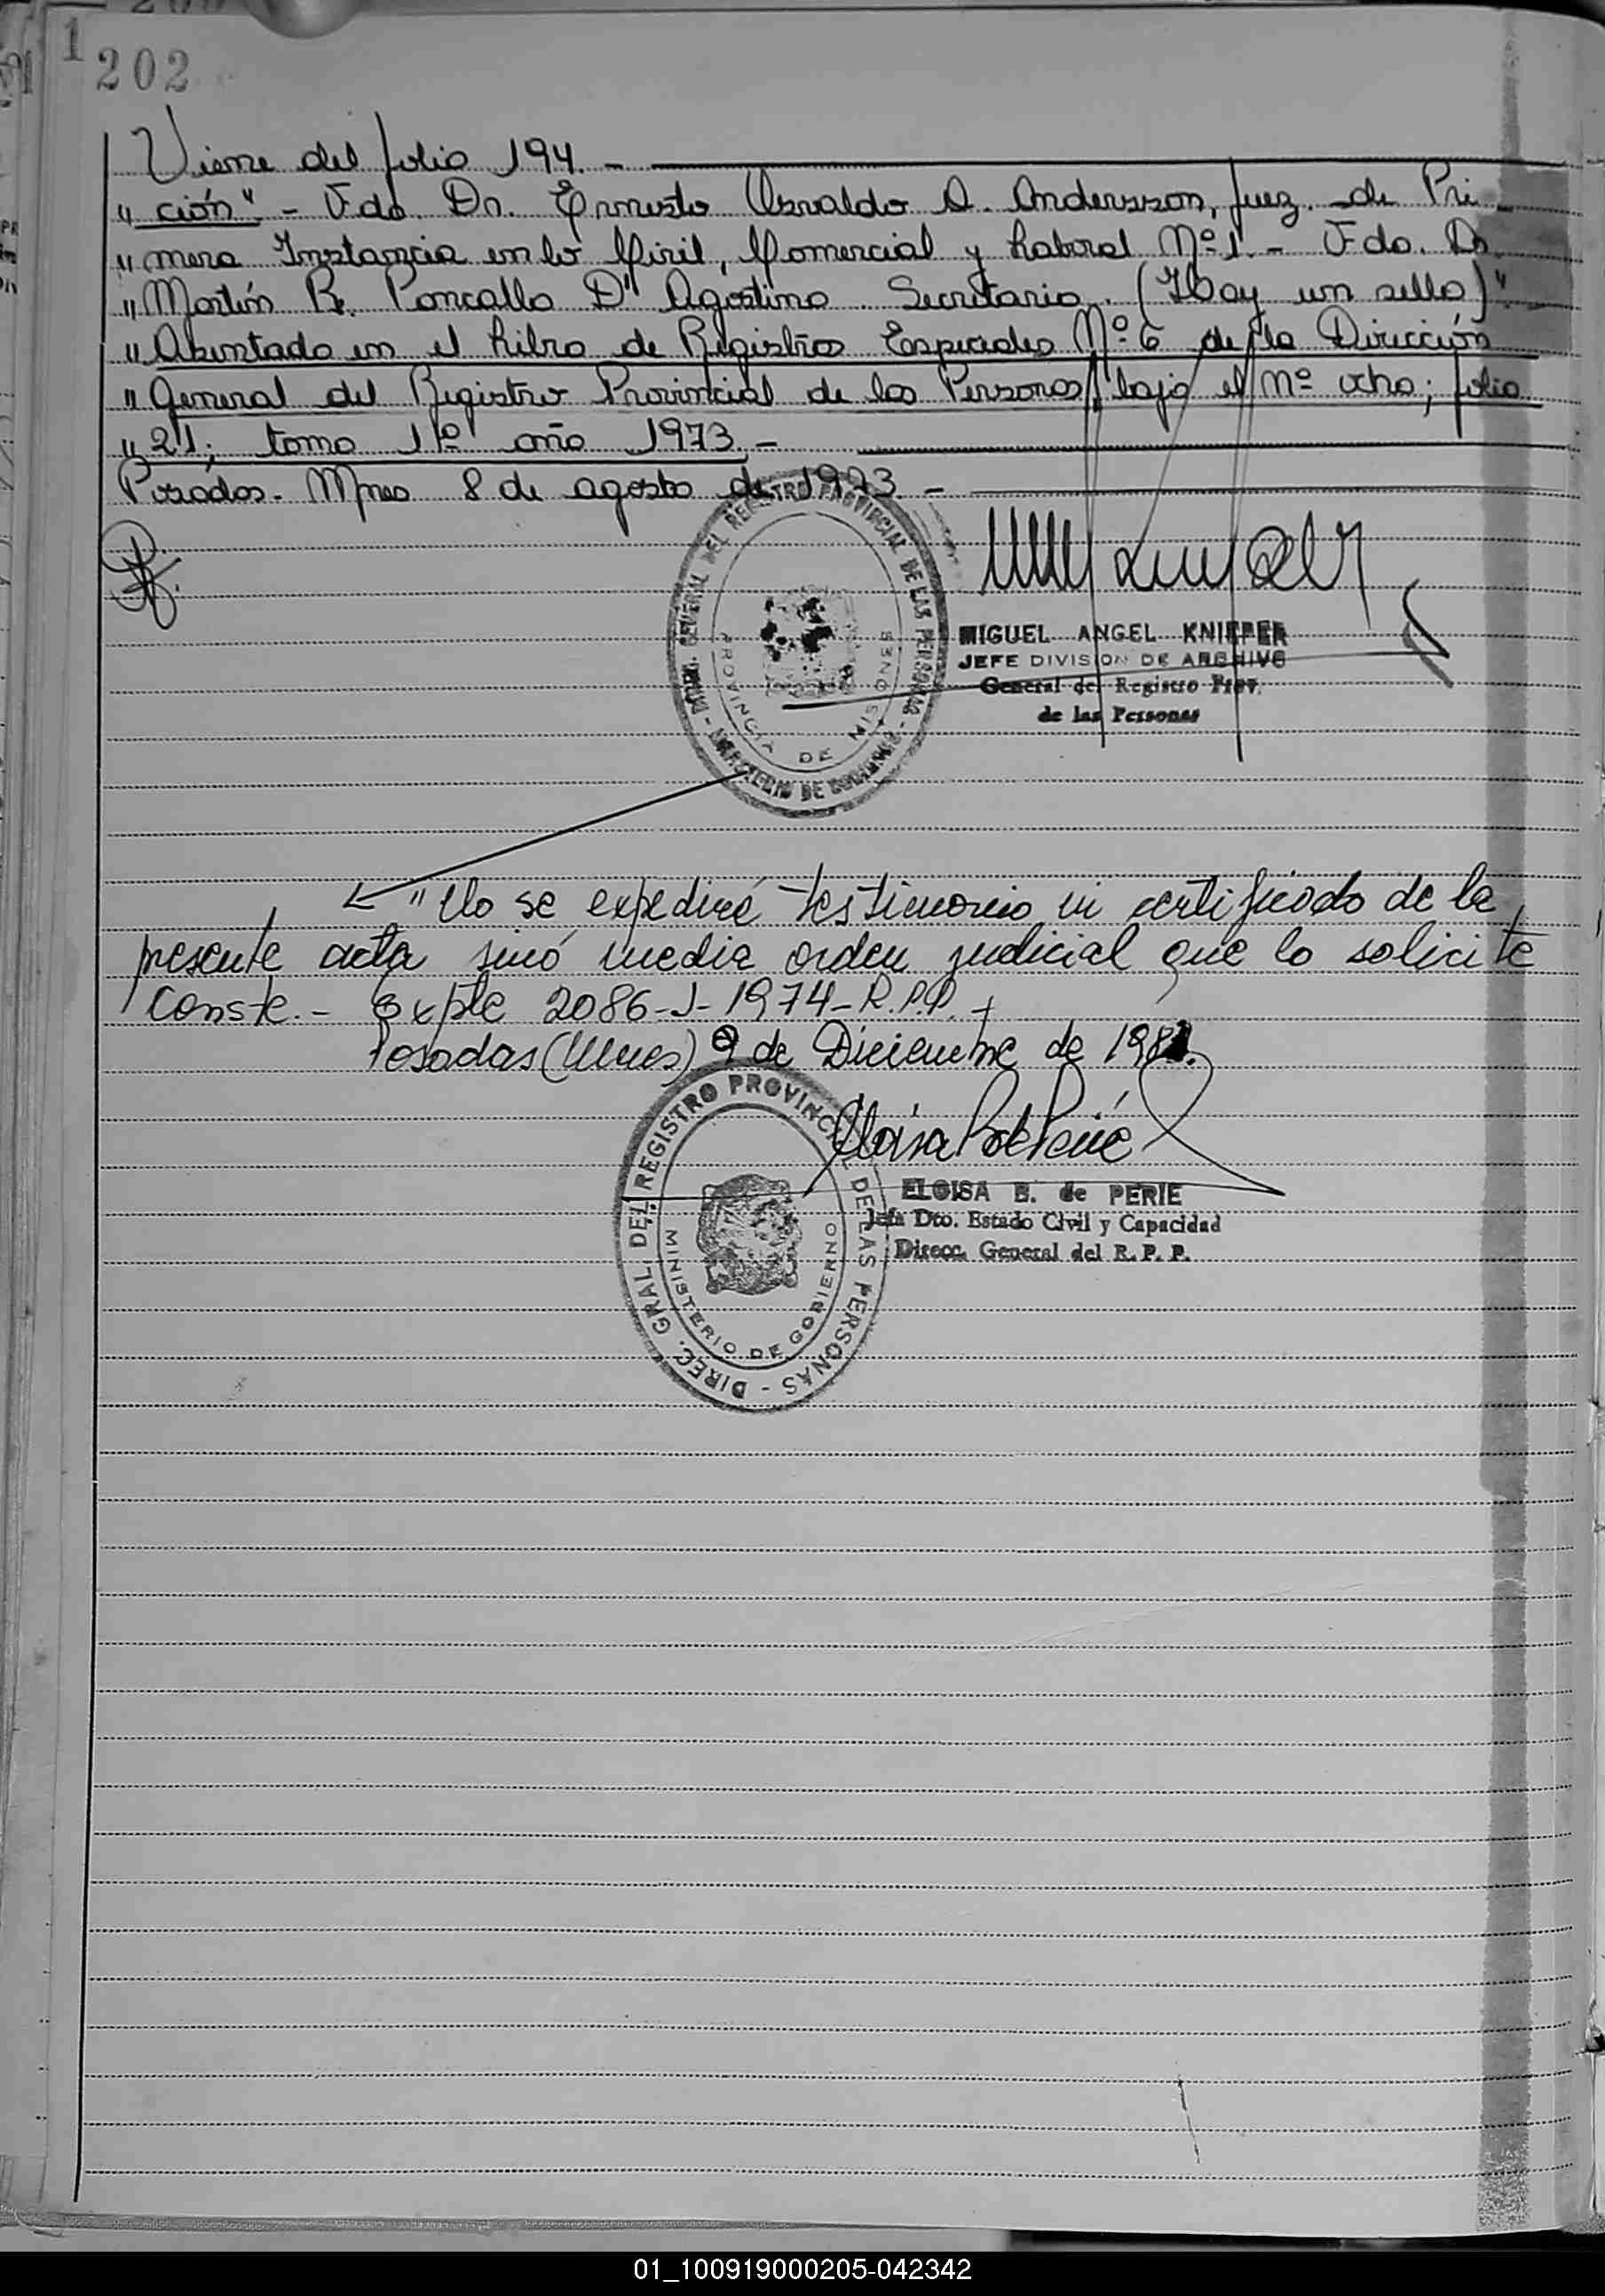 1
202
Viene del folio 194. -
" ción". - Fdo. Dr. Ernesto Osvaldo A. Andersson, Juez de Pri
" mera Instancia en lo Civil, Comercial y Laboral Nº 1. - Fdo. Dr.
" Martín R. Poncallo D' Agostino. Secretario. (Hay un sello)".
" Asentado en el Libro de Registros Especiales Nº 6 de la Dirección
" General del Registro Provincial de las Personas, bajo el nº ocho; folio
" 21; tomo 1º año 1973. -
Posadas. Mnes 8 de agosto de 1973. -
DIREC. GENERAL DEL REGISTRO PROVINCIAL DE LAS PERSONAS - MINISTERIO DE GOBIERNO -
PROVINCIA DE MISIONES
MIGUEL ANGEL KNIEPER
JEFE DIVISION DE ARCHIVO
General del Registro Prov.
de las Personas
" No se expediré testimonio ni certificado de la
presente acta sinó media orden judicial que lo solicite
Conste. - Expte 2086-J-1974-R.P.P. +
Posadas (Mnes) 9 de Diciembre de 1981.
DIREC. GRAL. DEL REGISTRO PROVINCIAL DE LAS PERSONAS -
MINISTERIO DE GOBIERNO
Eloisa B de Perié
ELOISA B. de PERIE
Jefa Dto. Estado Civil y Capacidad
Direcc. General del R. P. P.
01_100919000205-042342